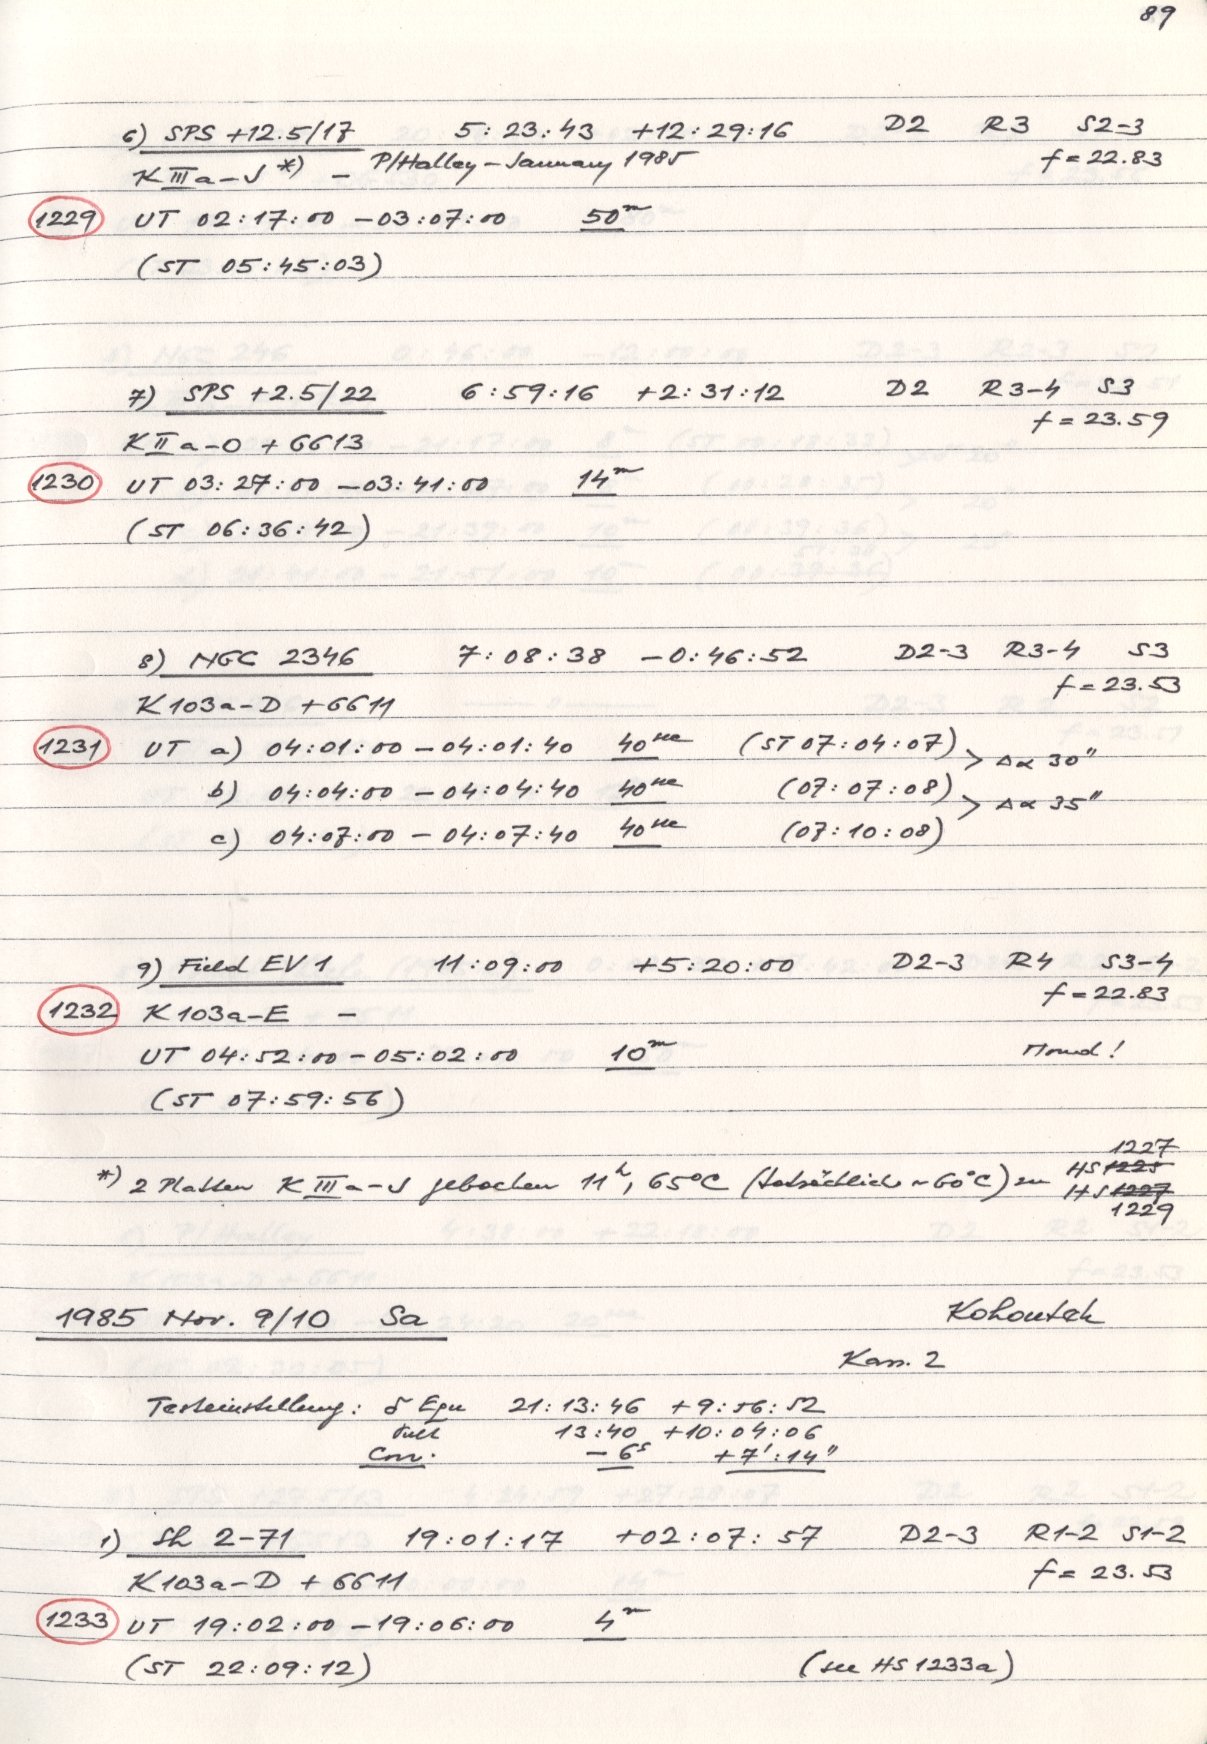 89
6) SPS +12.5/17 5:23:43 +12:29:16 D2 R3 S2-3
f = 22.83
K III a-J *) – P/Halley – January 1985
1229 UT 02:17:00 – 03:07:00 50m
(ST 05:45:03)
7) SPS +2.5/22 6:59:16 +2:31:12 D2 R3-4 S3
f = 23.59
K II a-O + GG13
1230 UT 03:27:00 – 03:41:00 14m
(ST 06:36:42)
8) NGC 2346 7:08:38 -0:46:52 D2-3 R3-4 S3
f = 23.53
K 103a-D + GG11
1231 UT a) 04:01:00 – 04:01:40 40sec (ST 07:04:07) > Δα 30"
b) 04:04:00 – 04:04:40 40sec (07:07:08) > Δα 35"
c) 04:07:00 – 04:07:40 40sec (07:10:08)
9) Field EV 1 11:09:00 +5:20:00 D2-3 R4 S3-4
f = 22.83
1232 K 103a-E –
UT 04:52:00 – 05:02:00 10m Mond!
(ST 07:59:56)
1227
*) 2 Platten K III a-J gebacken 11h, 65°C (tatsächlich ~60°C) zu HS 1225
HS 1227
1229
1985 Nov. 9/10 Sa Kohoutek
Kass. 2
Testeinstellung: δ Equ 21:13:46 +9:56:52
13:40 +10:04:06
Corr. -6s +7':14"
1) Sh 2-71 19:01:17 +02:07:57 D2-3 R1-2 S1-2
K 103a-D + GG11 f = 23.53
1233 UT 19:02:00 – 19:06:00 4m
(ST 22:09:12) (see HS 1233a)